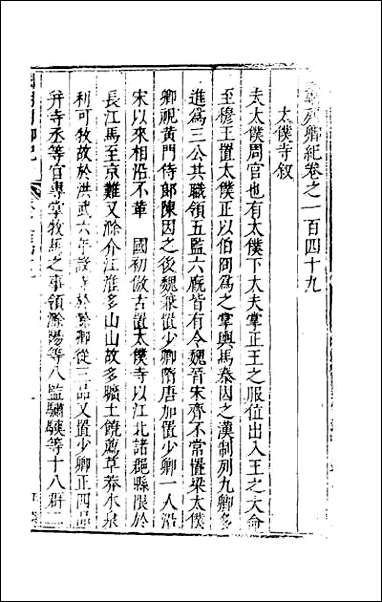 列卿紀卷之一百四十九
太僕寺敘
夫太僕周官也有太僕下大夫掌正王之服位出入王之大命
至穆王置太僕正以伯冏為之掌輿馬秦因之漢制列九卿多
進為三公其職領五監六廄皆有令魏晉宋齊不常置梁太僕
卿視黃門侍郎陳因之後魏兼置少卿隋唐加置少卿一人沿
宋以來相沿不革　國初倣古置太僕寺以江北諸郡縣限於
長江馬至京難又滁介江淮多山山故多曠土饒薦草莽水泉
利可牧故於洪武六年設寺於滁卿從三品又置少卿正四品
并寺丞等官專掌牧馬之事領滁陽等八監驌驥等十八群